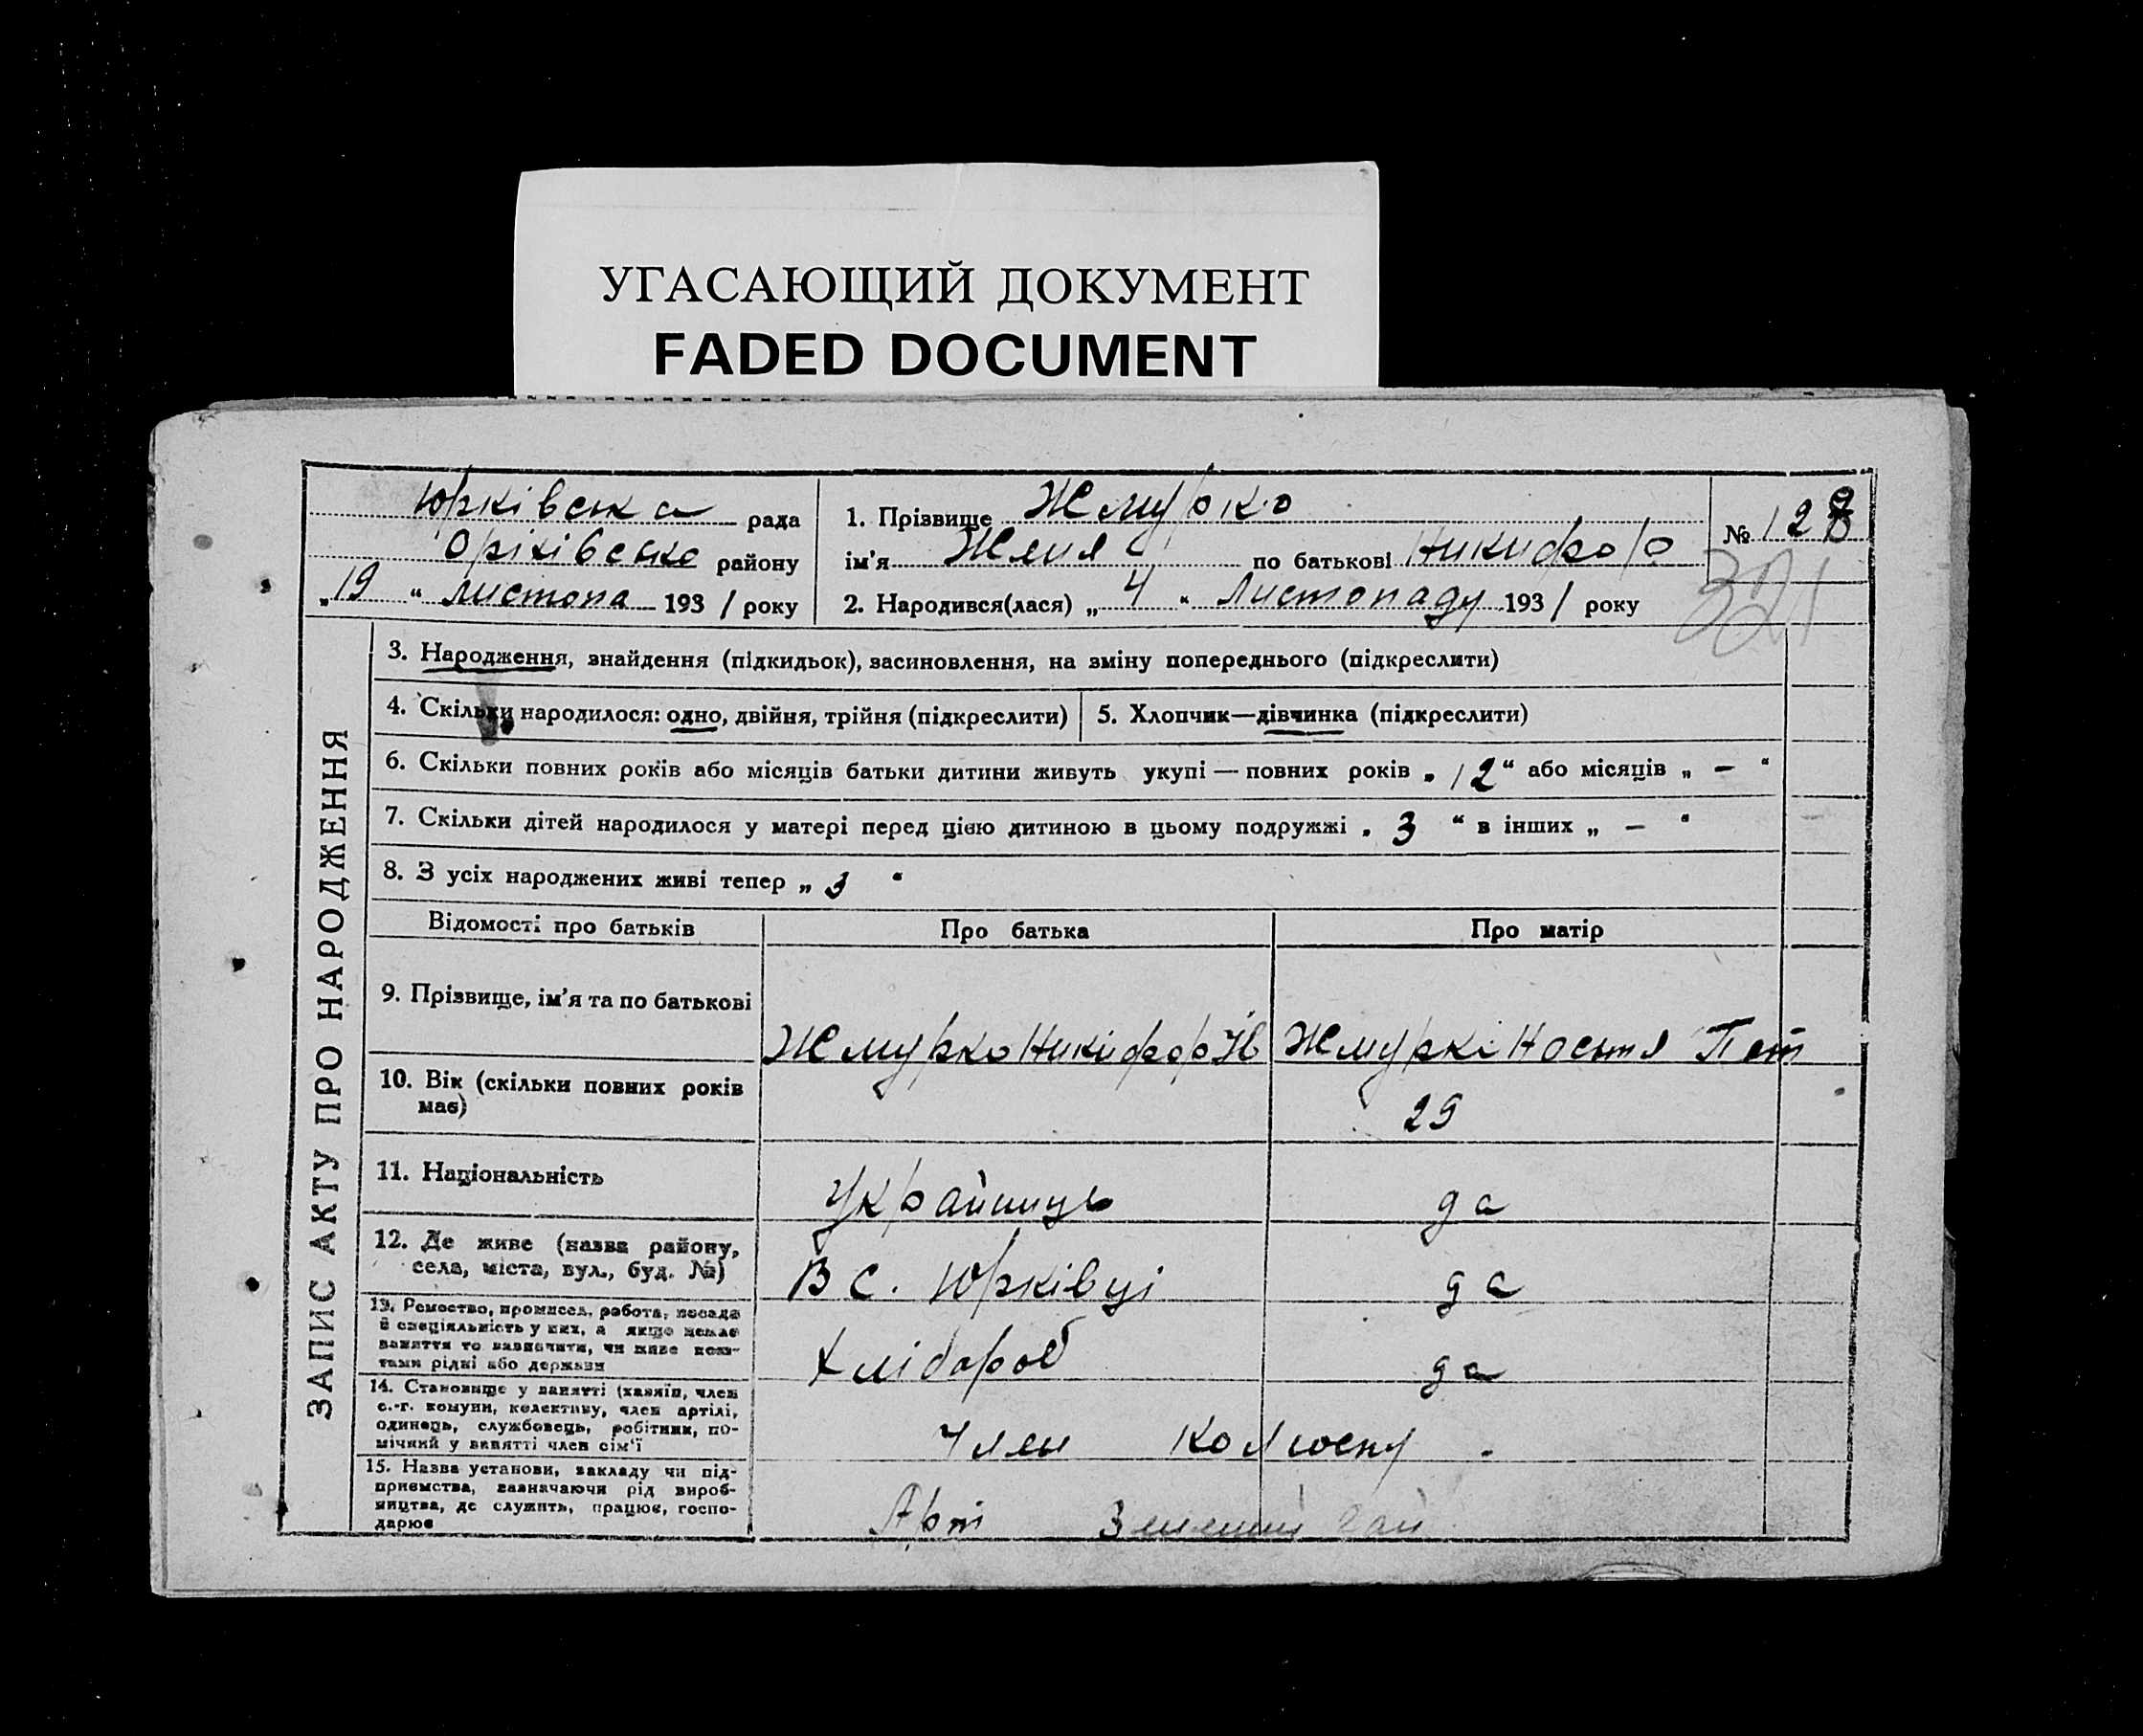 УГАСАЮЩИЙ ДОКУМЕНТ
FADED DOCUMENT
Юрківська рада
Оріхівське району
„19“ листопа 1931 року
1. Прізвище Жмурко
ім'я Женя по батькові Никифоро
2. Народився(лася) „4“ Листопаду 1931 року
№ 128
321
ЗАПИС АКТУ ПРО НАРОДЖЕННЯ
3. Народження, знайдення (підкидьок), засиновлення, на зміну попереднього (підкреслити)
4. Скільки народилося: одно, двійня, трійня (підкреслити)
5. Хлопчик—дівчинка (підкреслити)
6. Скільки повних років або місяців батьки дитини живуть укупі — повних років „12“ або місяців „—“
7. Скільки дітей народилося у матері перед цією дитиною в цьому подружжі „3“ в інших „—“
8. З усіх народжених живі тепер „3“
Відомості про батьків Про батька Про матір
9. Прізвище, ім'я та по батькові
Жмурко Никифор Ів Жмуркі Настя Пет
10. Вік (скільки повних років
має) 29
11. Національність Украйинць да
12. Де живе (назва району,
села, міста, вул., буд. №) В с. Юрківці да
13. Ремество, промисел, робота, посада
й спеціяльність у них, а якщо немає
заняття то зазначити, чи живе кош-
тами рідні або держави Хлібороб да
14. Становище у занятті (хазяїн, член
с.-г. комуни, колективу, член артілі,
одинець, службовець, робітник, по-
мічний у занятті член сім'ї Член колгоспу .
15. Назва установи, закладу чи під-
приємства, зазначаючи рід вироб-
ництва, де служить, працює, госпо-
дарює Арт Зелений гай